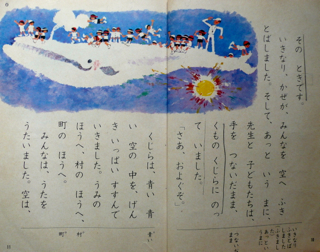 その ときです。
いきなり、かぜが、みんなを 空へ ふき
とばしました。そして、あっと いう まに、
先生と 子どもたちは、
手を つないだまま、
くもの くじらに のっ
て いました。
「さあ、およぐぞ。」
くじらは、青い 青
い 空の 中を、げん
き いっぱい すすんで
いきました。うみの
ほうへ、村の ほうへ、
町の ほうへ。
みんなは、うたを
うたいました。空は、